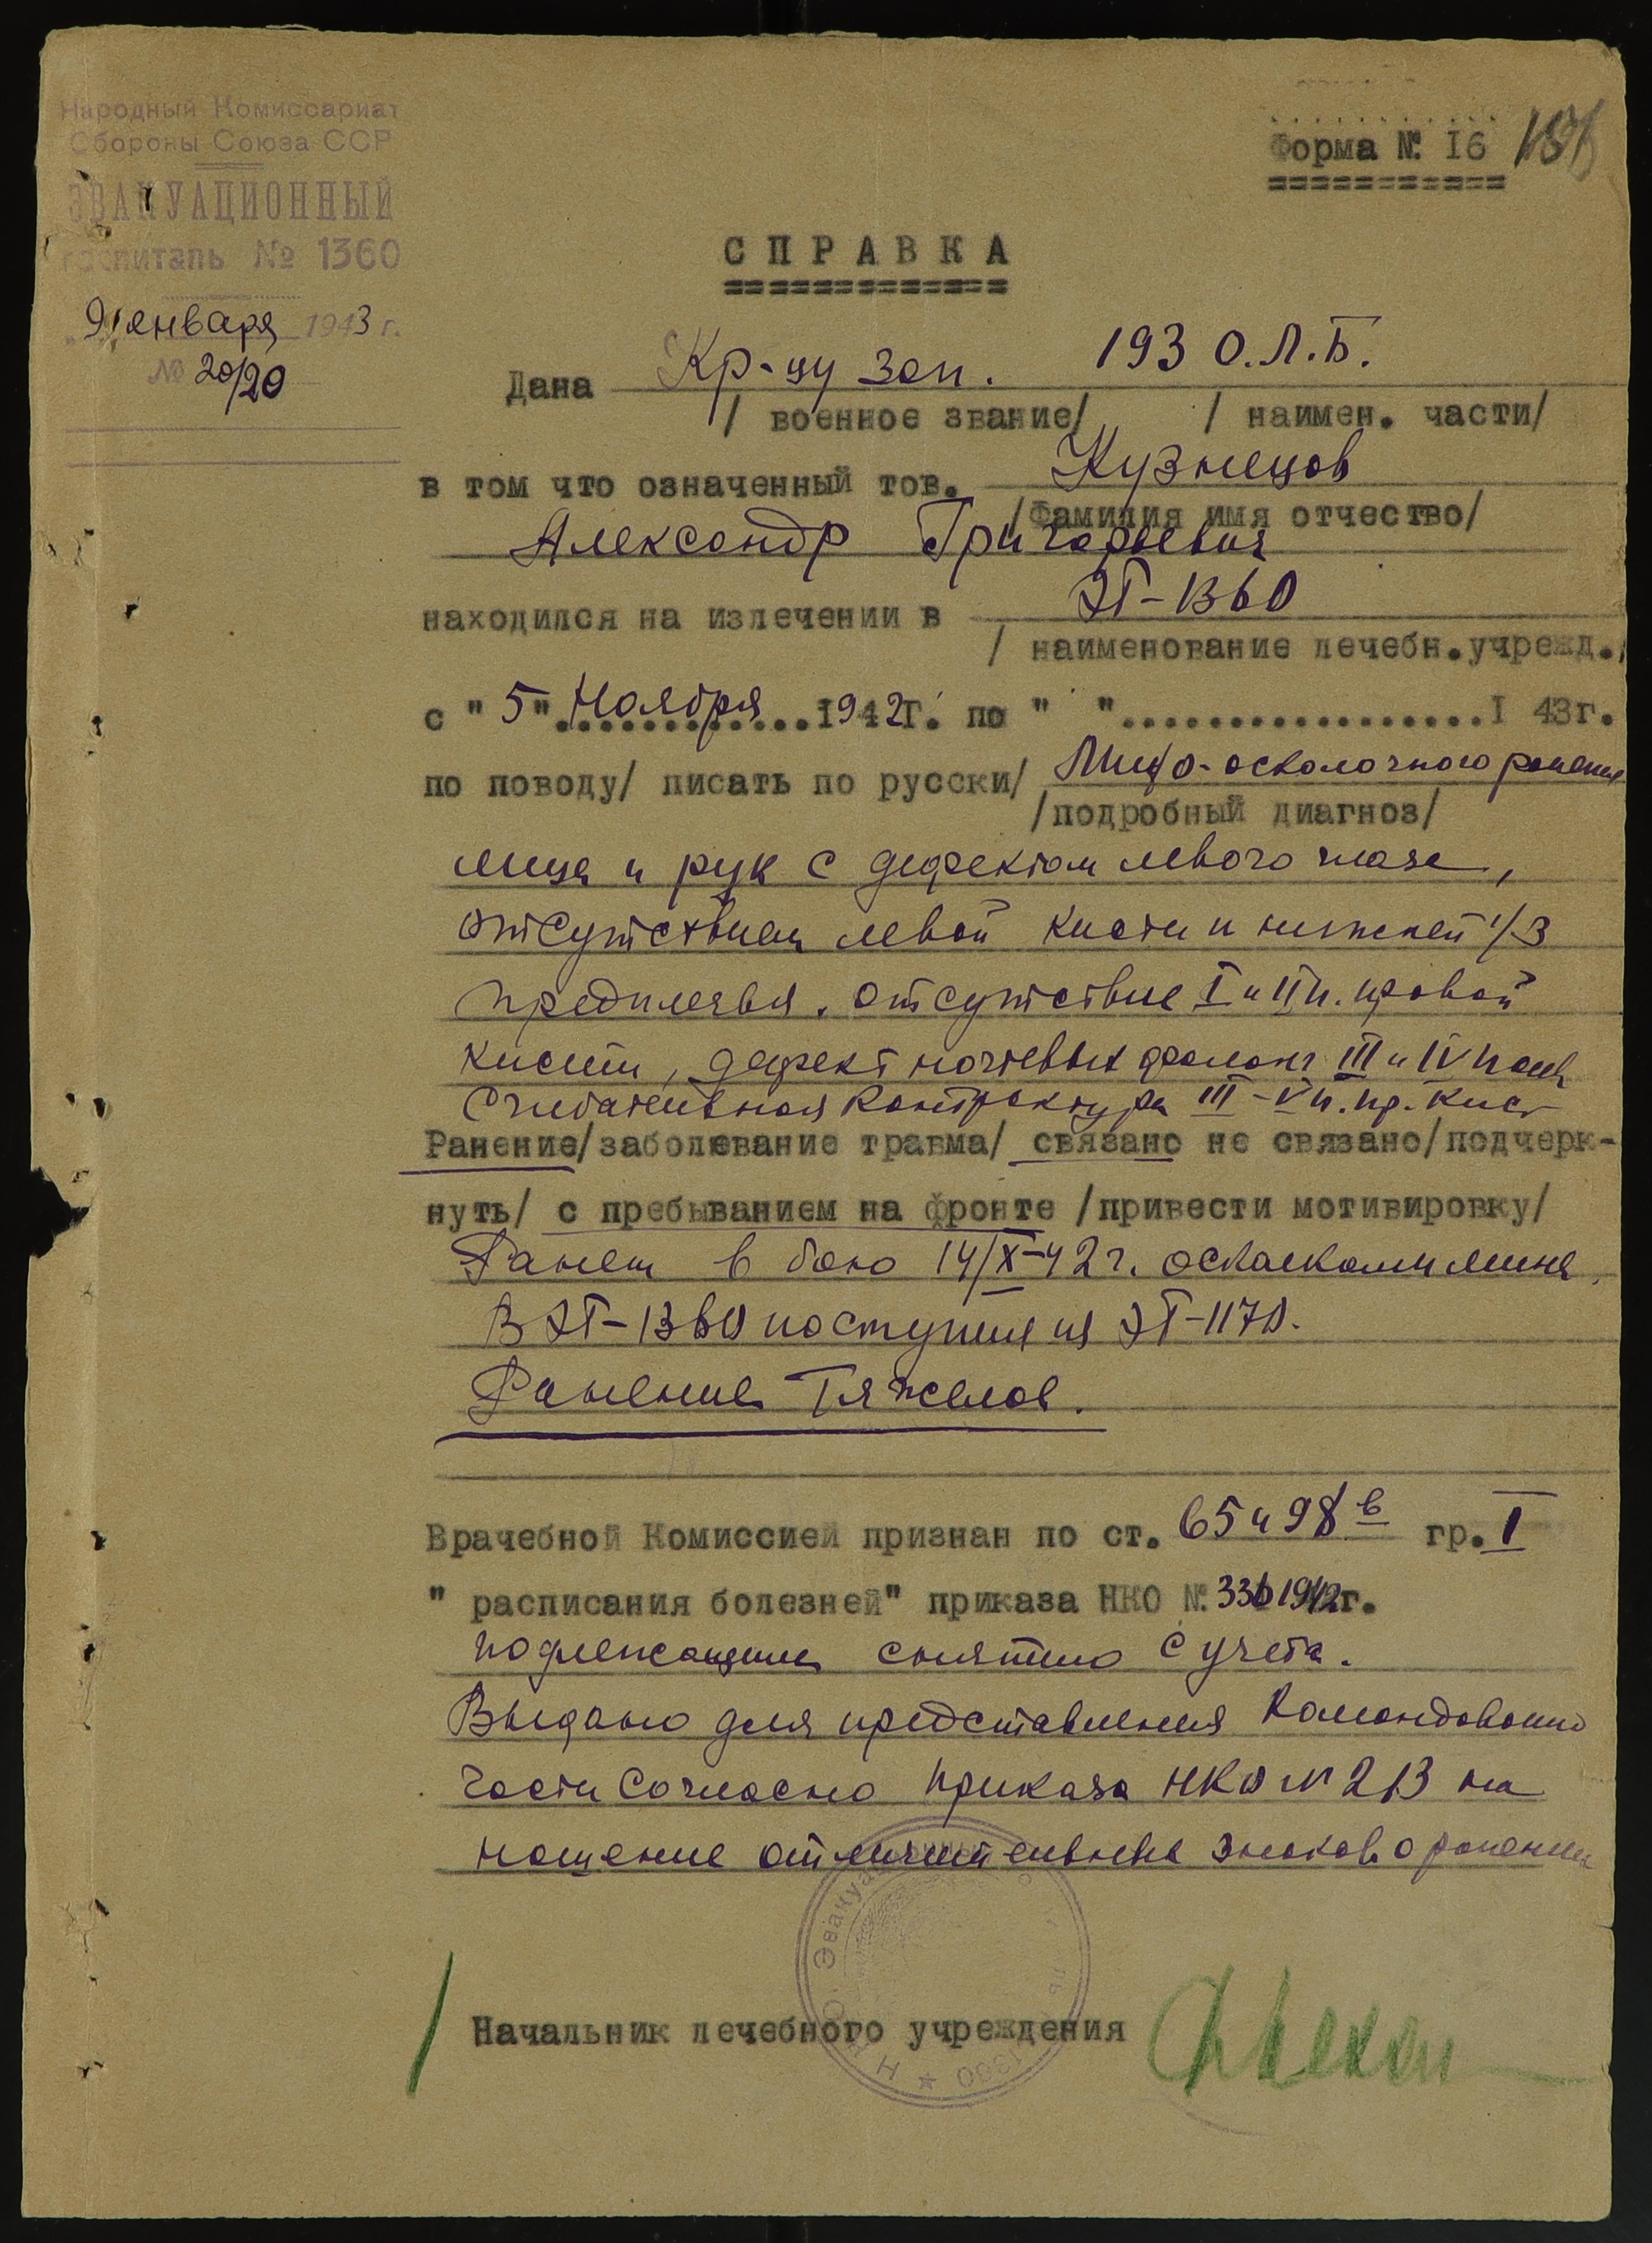 Народный Комиссариат
Обороны Союза ССР
ЭВАКУАЦИОННЫЙ
госпиталь № 1360
"9" января 1943 г.
№ 20/20
Форма № I6
СПРАВКА
Дана Кр-цу зап. 193 О.Л.Б.
/ военное звание/ / наимен. части/
в том что означенный тов. Кузнецов
/Фамилия имя отчество/
Александр Григорьевич
находился на излечении в ЭГ-1360
/ наименование лечебн.учрежд./
с "5" Ноября 1942г. по " "..................I 43г.
по поводу/ писать по русски/ осколочного ранения
/подробный диагноз/
лица и рук с дефектом левого глаза,
отсутствием левой кисти и нижней 1/3
предплечья. отсутствие I и II п. правой
кисти, дефект ногтевых фаланг III и IV пальц
Сгибательная контрактура III-V п. пр. кист
Ранение/заболевание травма/ связано не связано/подчерк-
нуть/ с пребыванием на фронте /привести мотивировку/
Ранен в бою 14/X-42г. осколками мины.
В ЭГ-1360 поступил из ЭГ-1170.
Ранение Тяжелое.
Врачебной Комиссией признан по ст. 65 и 98 в гр. I
" расписания болезней" приказа НКО №. 336 1942г.
подлежащим снятию с учета.
Выдано для представления Командованию
части согласно приказа НКО № 213 на
ношение отличительных знаков о ранении
Начальник лечебного учреждения